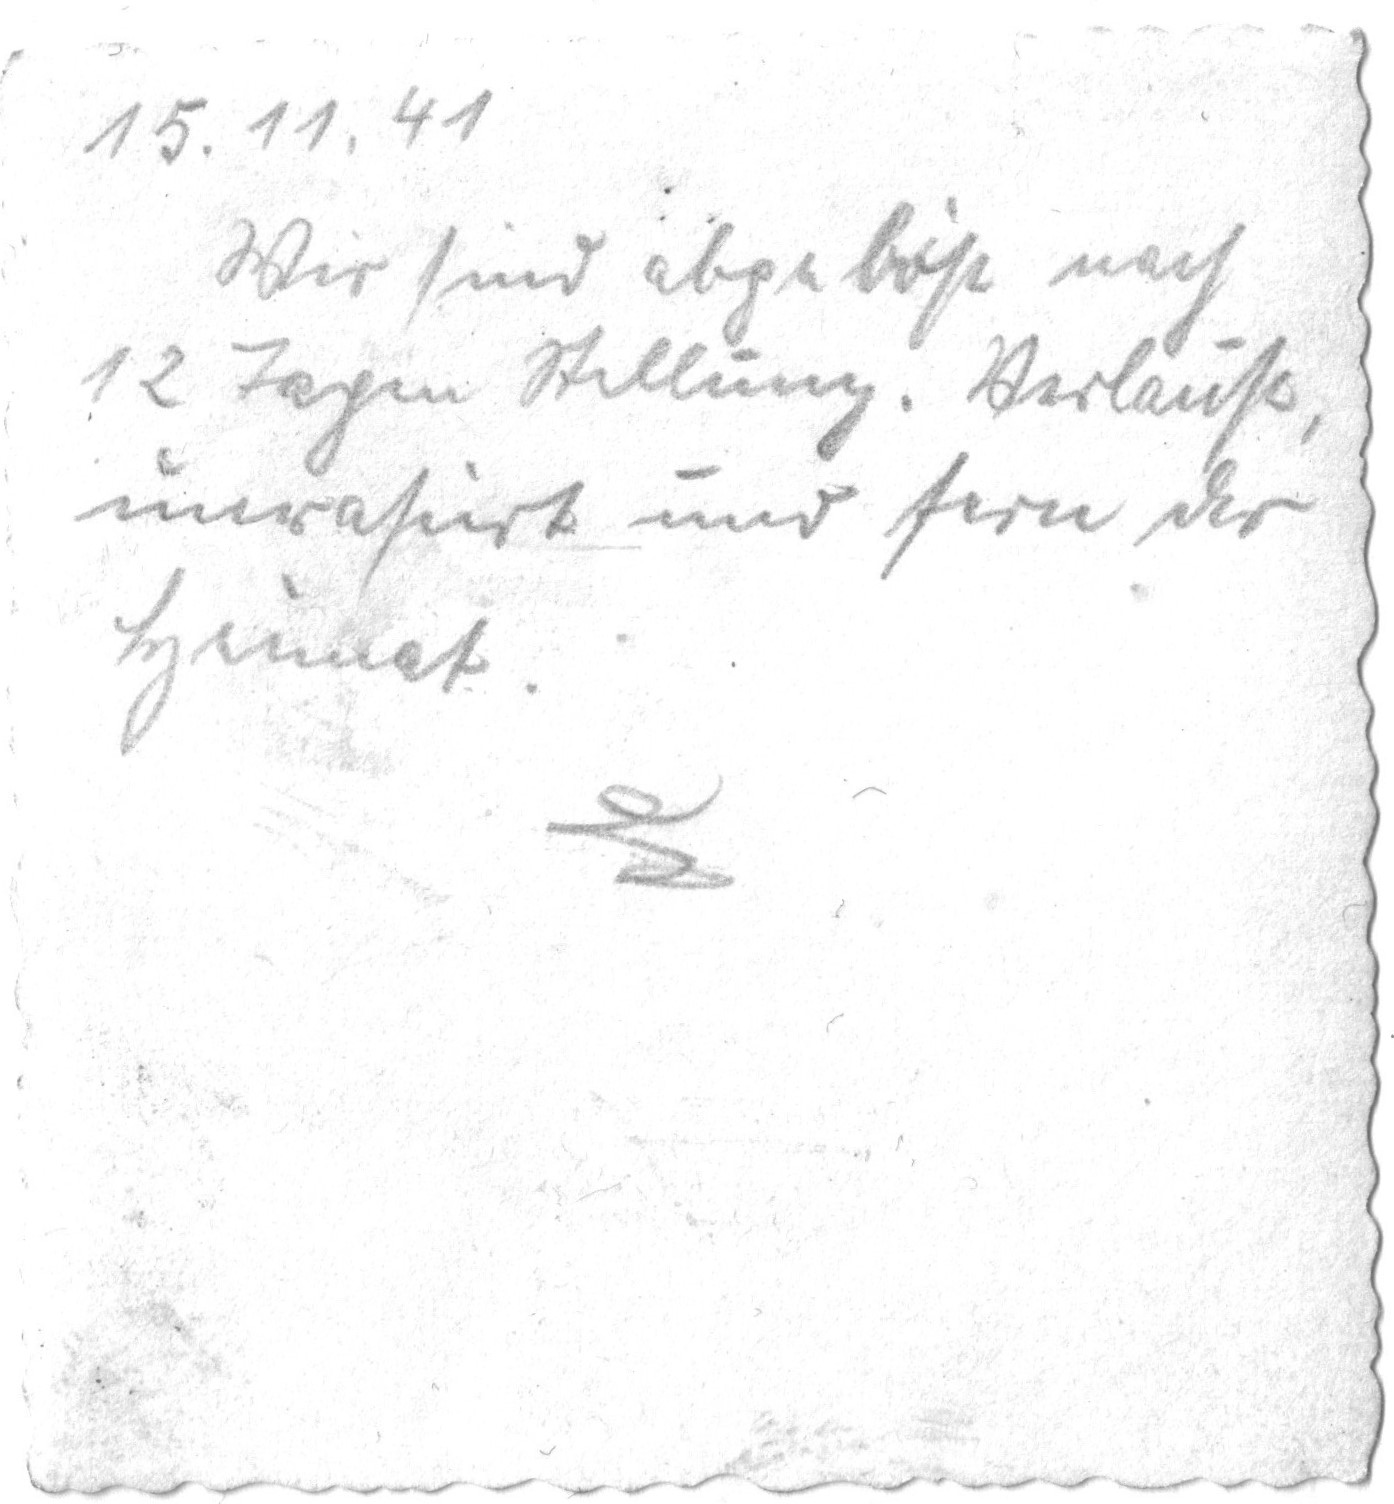 15. 11. 41
Wir sind abgelöst nach
12 Tagen Stellung. Verlaust,
unrasiert und fern der
Heimat.